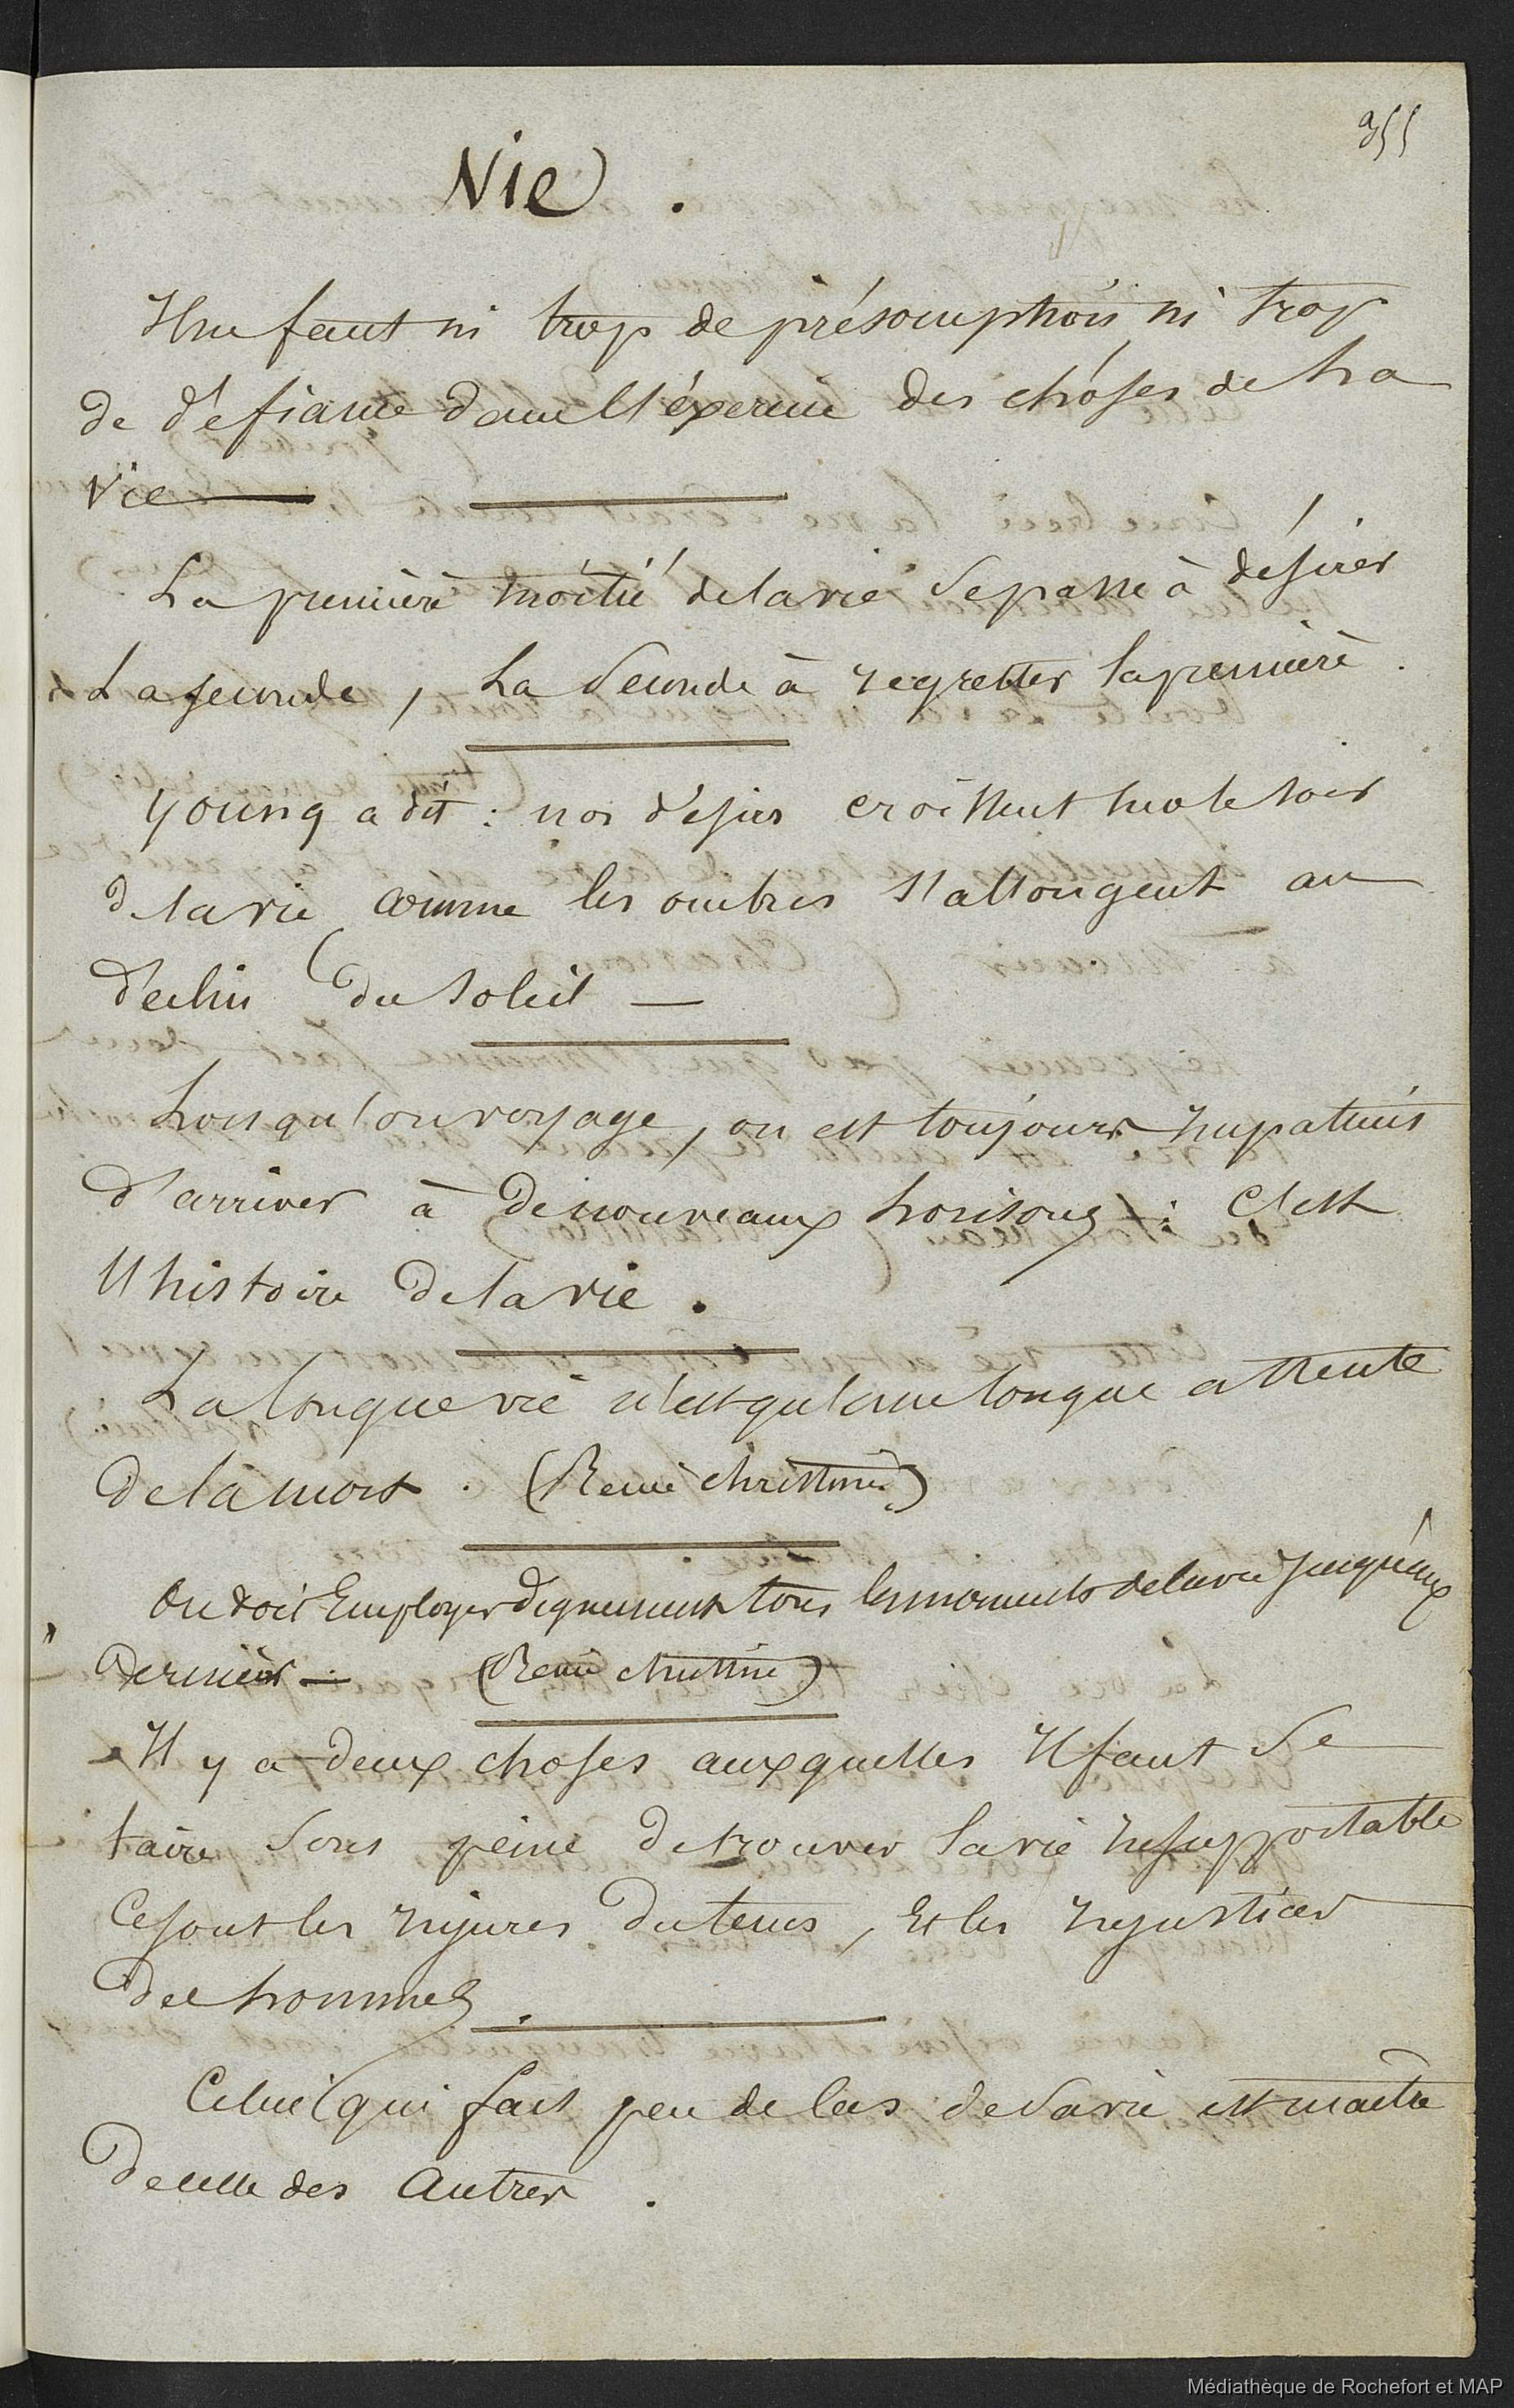 355
Vie.
Il ne faut ni trop de présomption ni trop
de défiance dans l'exercice des choses de la
vie
La première moitié de la vie se passe à désirer
La seconde, La Seconde à regretter la première.
Young a dit : nos désirs croissent sur le soir
de la vie comme les ombres s'allongent au
déclin du soleil —
Lorsqu'on voyage, on est toujours impatient
d'arriver à de nouveaux horisons : c'est
l'histoire de la vie.
La longue vie n'est qu'une longue attente
de la mort. (Reine christine)
On doit Employer dignement tous les moments de la vie jusqu'aux
derniers — (Reine christine)
Il y a deux choses auxquelles Il faut se
faire sous peine de trouver la vie insupportable
Ce sont les injures du tems, Et les injustices
des hommes.
Celui qui fait peu de cas de sa vie est maître
de celle des Autres.
Médiathèque de Rochefort et MAP